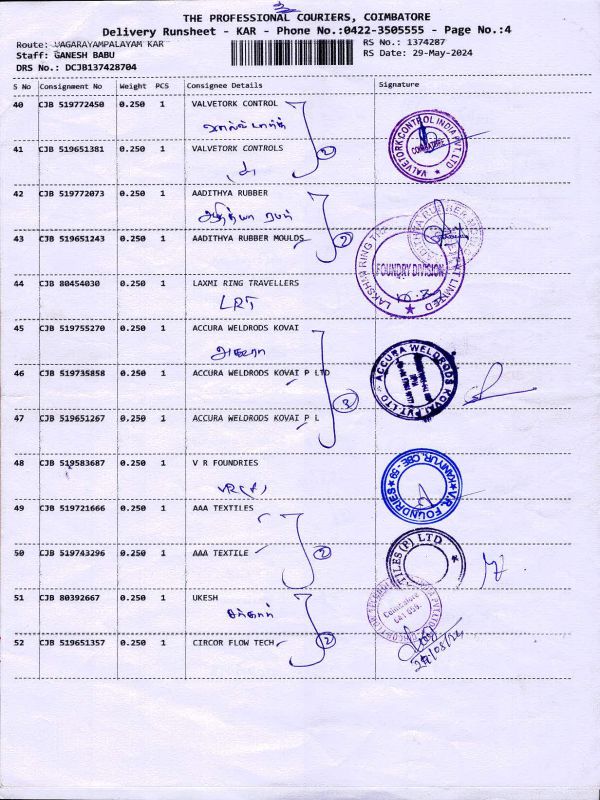 THE PROFESSIONAL COURIERS, COIMBATORE
Delivery Runsheet - KAR - Phone No.:0422-3505555 - Page No.:4
Route: VAGARAYAMPALAYAM KAR
RS No.: 1374287
Staff: GANESH BABU
RS Date: 29-May-2024
DRS No.: DCJB137428704
S No Consignment No Weight PCS Consignee Details Signature
40 CJB 519772450 0.250 1 VALVETORK CONTROL
41 CJB 519651381 0.250 1 VALVETORK CONTROLS
2
VALVETORK CONTROL INDIA PVT. LTD
COIMBATORE
42 CJB 519772073 0.250 1 AADITHYA RUBBER
ஆதித்யா ரப்பர்
43 CJB 519651243 0.250 1 AADITHYA RUBBER MOULDS
2
FOUNDRY DIVISION
44 CJB 80454030 0.250 1 LAXMI RING TRAVELLERS
LRT
45 CJB 519755270 0.250 1 ACCURA WELDRODS KOVAI
அகுரா
46 CJB 519735858 0.250 1 ACCURA WELDRODS KOVAI P LTD
3
ACCURA WELDRODS KOVAI PVT LTD
47 CJB 519651267 0.250 1 ACCURA WELDRODS KOVAI P L
48 CJB 519583687 0.250 1 V R FOUNDRIES
VR (f)
V.R. FOUNDRIES
KANIYUR, CBE - 59
49 CJB 519721666 0.250 1 AAA TEXTILES
50 CJB 519743296 0.250 1 AAA TEXTILE
2
TILES (P) LTD
51 CJB 80392667 0.250 1 UKESH
Coimbatore
641 059.
52 CJB 519651357 0.250 1 CIRCOR FLOW TECH
2